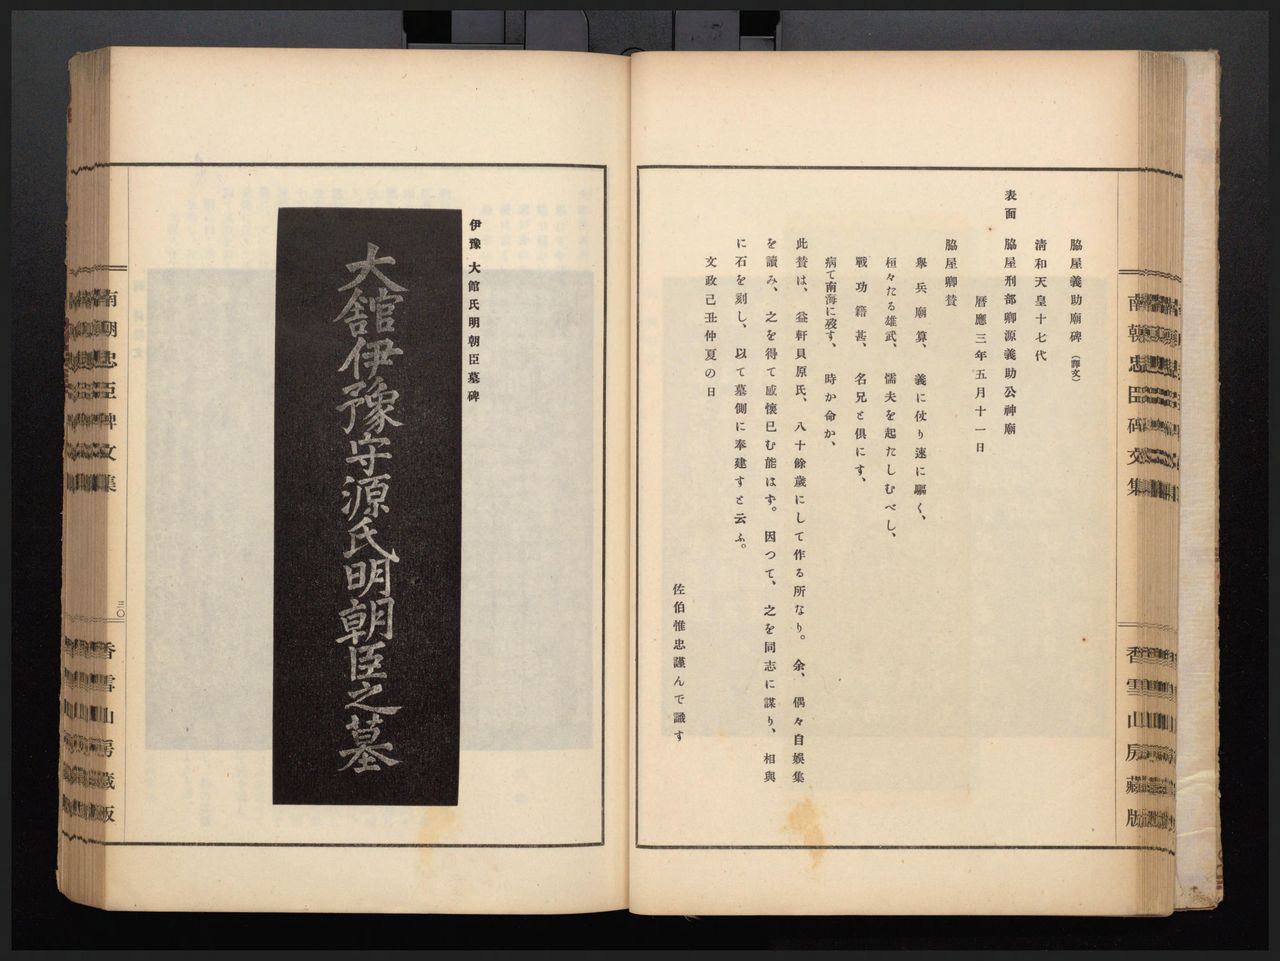 脇屋義助廟碑（譯文）
淸和天皇十七代
表面　脇屋刑部卿源義助公神廟
曆應三年五月十一日
脇屋卿賛
擧兵廟算、義に仗り速に驅く、
桓々たる雄武、懦夫を起たしむべし、
戰功籍甚、名兄と俱にす、
病て南海に歿す、時か命か、
此賛は、益軒貝原氏、八十餘歲にして作る所なり。余、偶々自娛集
を讀み、之を得て感懷已む能はず。因つて、之を同志に謀り、相與
に石を刻し、以て墓側に奉建すと云ふ。
文政己丑仲夏の日
佐伯惟忠謹んで識す
南朝忠臣碑文集
香雪山房藏版
伊豫 大館氏明朝臣墓碑
大舘伊豫守源氏明朝臣之墓
南朝忠臣碑文集
三〇
香雪山房藏版